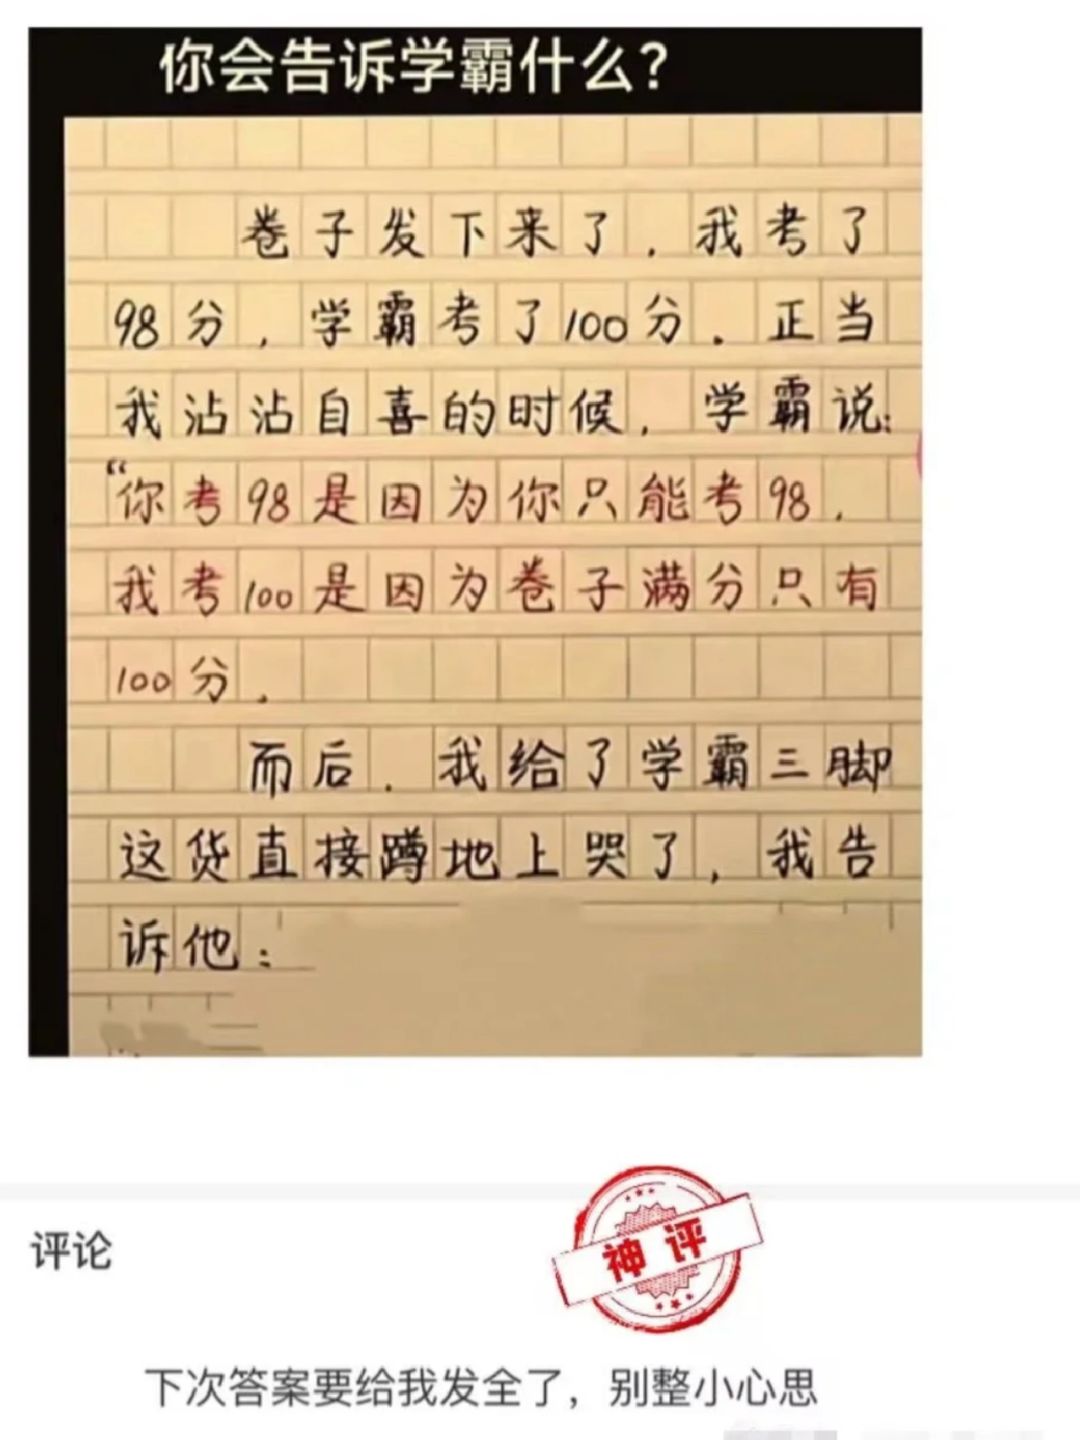 你会告诉学霸什么？
卷子发下来了．我考了
98分，学霸考了100分．正当
我沾沾自喜的时候，学霸说：
“你考98是因为你只能考98．
我考100是因为卷子满分只有
100分．
而后．我给了学霸三脚
这货直接蹲地上哭了，我告
诉他：
评论
神评
下次答案要给我发全了，别整小心思